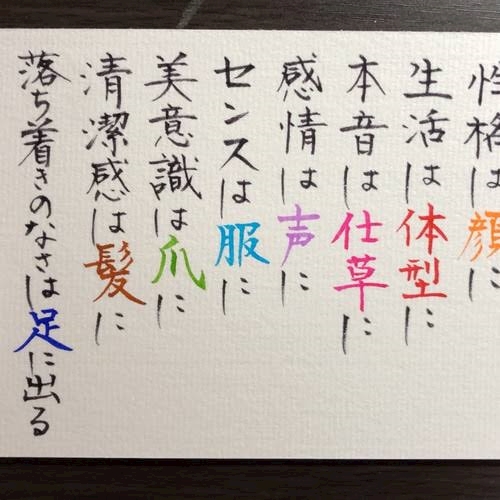 性格は顔に
生活は体型に
本音は仕草に
感情は声に
センスは服に
美意識は爪に
清潔感は髪に
落ち着きのなさは足に出る